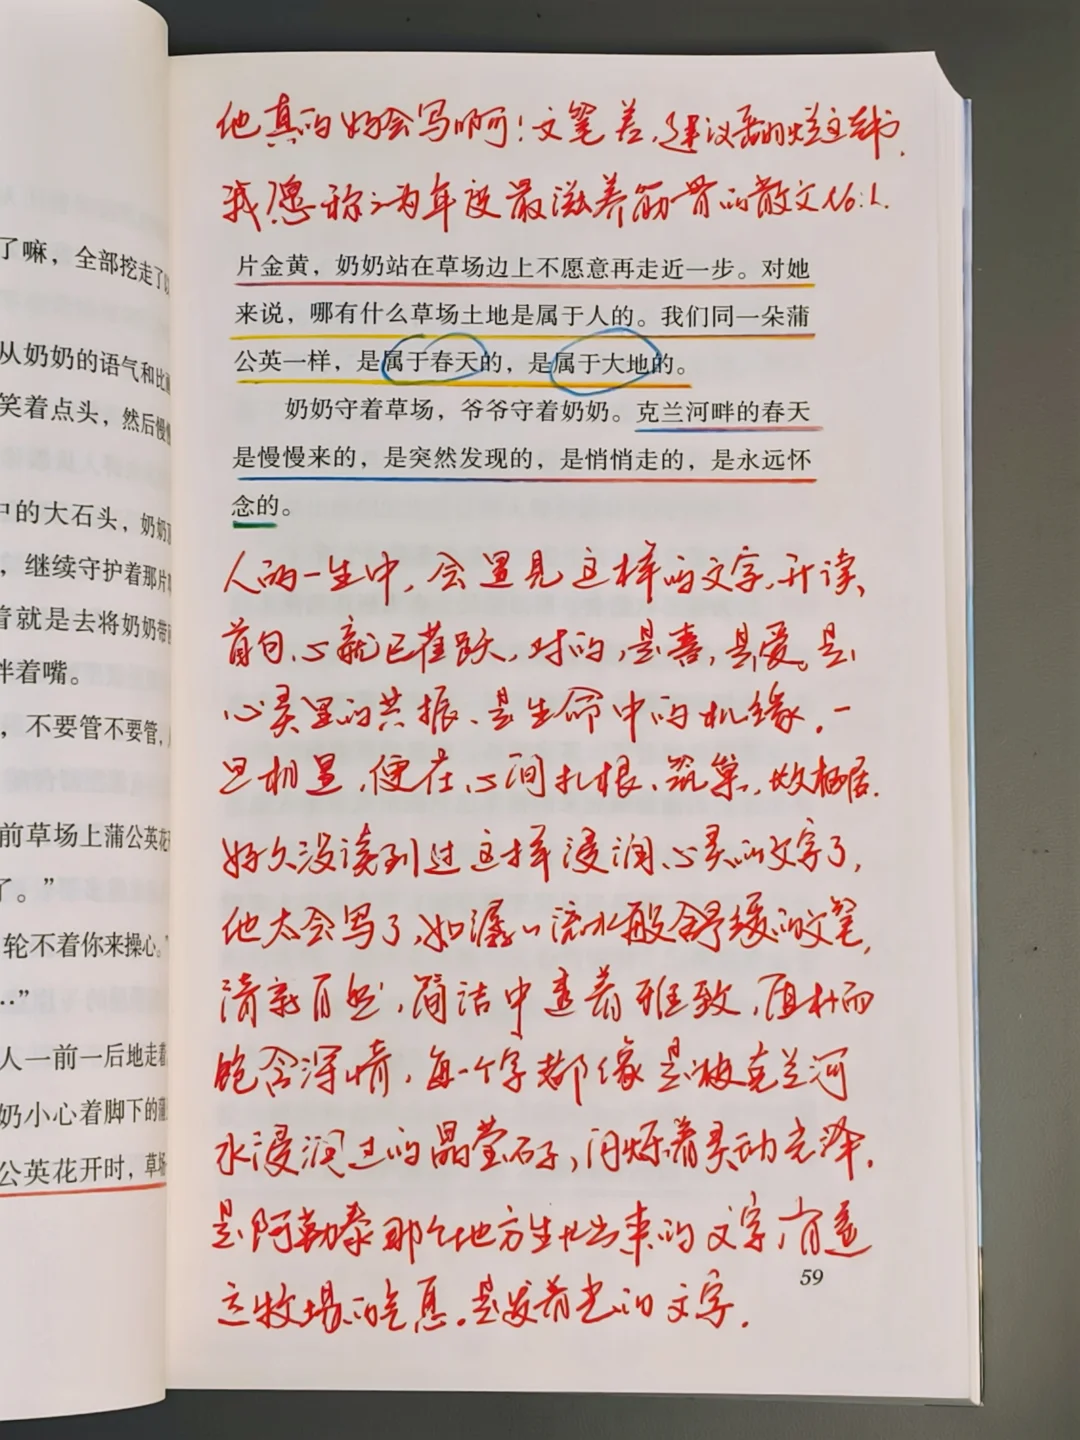 了嘛，全部挖走了以
从奶奶的语气和比
笑着点头，然后慢慢
中的大石头，奶奶
，继续守护着那片草
着就是去将奶奶带
拌着嘴。
，不要管不要管，
前草场上蒲公英花开
了。”
轮不着你来操心。”
…”
人一前一后地走着
奶小心着脚下的蒲
公英花开时，草场
他真的好会写啊！文笔差，建议翻烂这本书，
我愿称之为年度最滋养筋骨的散文No:1.
片金黄，奶奶站在草场边上不愿意再走近一步。对她
来说，哪有什么草场土地是属于人的。我们同一朵蒲
公英一样，是属于春天的，是属于大地的。
奶奶守着草场，爷爷守着奶奶。克兰河畔的春天
是慢慢来的，是突然发现的，是悄悄走的，是永远怀
念的。
人的一生中，会遇见这样的文字，开读、
首句、心就已雀跃，对的，是喜，是爱。是
心灵里的共振、是生命中的机缘，一
旦相遇，便在心间扎根、筑巢，做栖居.
好久没读到过这样浸润心灵的文字了，
他太会写了，如潺潺流水般舒缓的文笔，
清新自然，简洁中透着雅致，质朴而
饱含深情，每一个字都像是被克兰河
水浸润过的晶莹石子，闪烁着灵动光泽.
是阿勒泰那个地方生长出来的文字，有着
这牧场的气息。是发着光的文字.
59